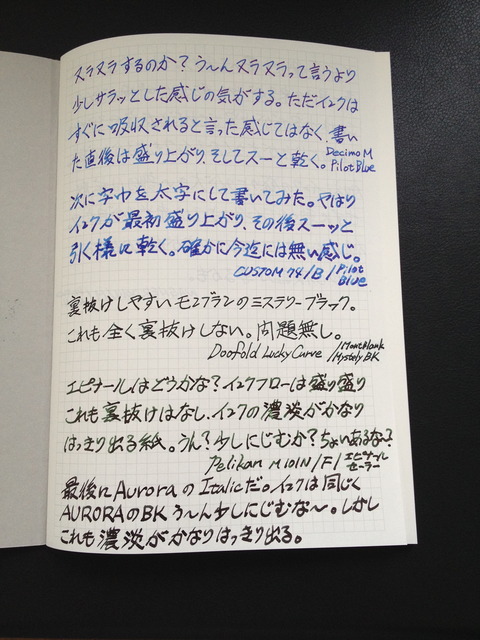 ヌラヌラするのか？う〜んヌラヌラって言うより
少しサラッとした感じの気がする。ただインクは
すぐに吸収されると言った感じではなく、書い
た直後は盛り上がり、そしてスーと乾く。
Decimo M
Pilot Blue
次に字巾を太字にして書いてみた。やはり
インクが最初盛り上がり、その後スーッと
引く様に乾く。確かに今迄には無い感じ。
CUSTOM 74/B/Pilot
blue
裏抜けしやすいモンブランのミステリーブラック。
これも全く裏抜けしない。問題無し。
Doofold Lucky Curve /MontBlank
/Mystely BK
エピナールはどうかな？インクフローは盛り盛り
これも裏抜けはなし、インクの濃淡がかなり
はっきり出る紙。うん？少しにじむか？ちょいあるな？
Pelikan M101N/F/エピナール
セーラー
最後にAuroraのItalicだ。インクは同じく
AURORAのBK う〜ん少しにじむな〜。しかし
これも濃淡がかなりはっきり出る。